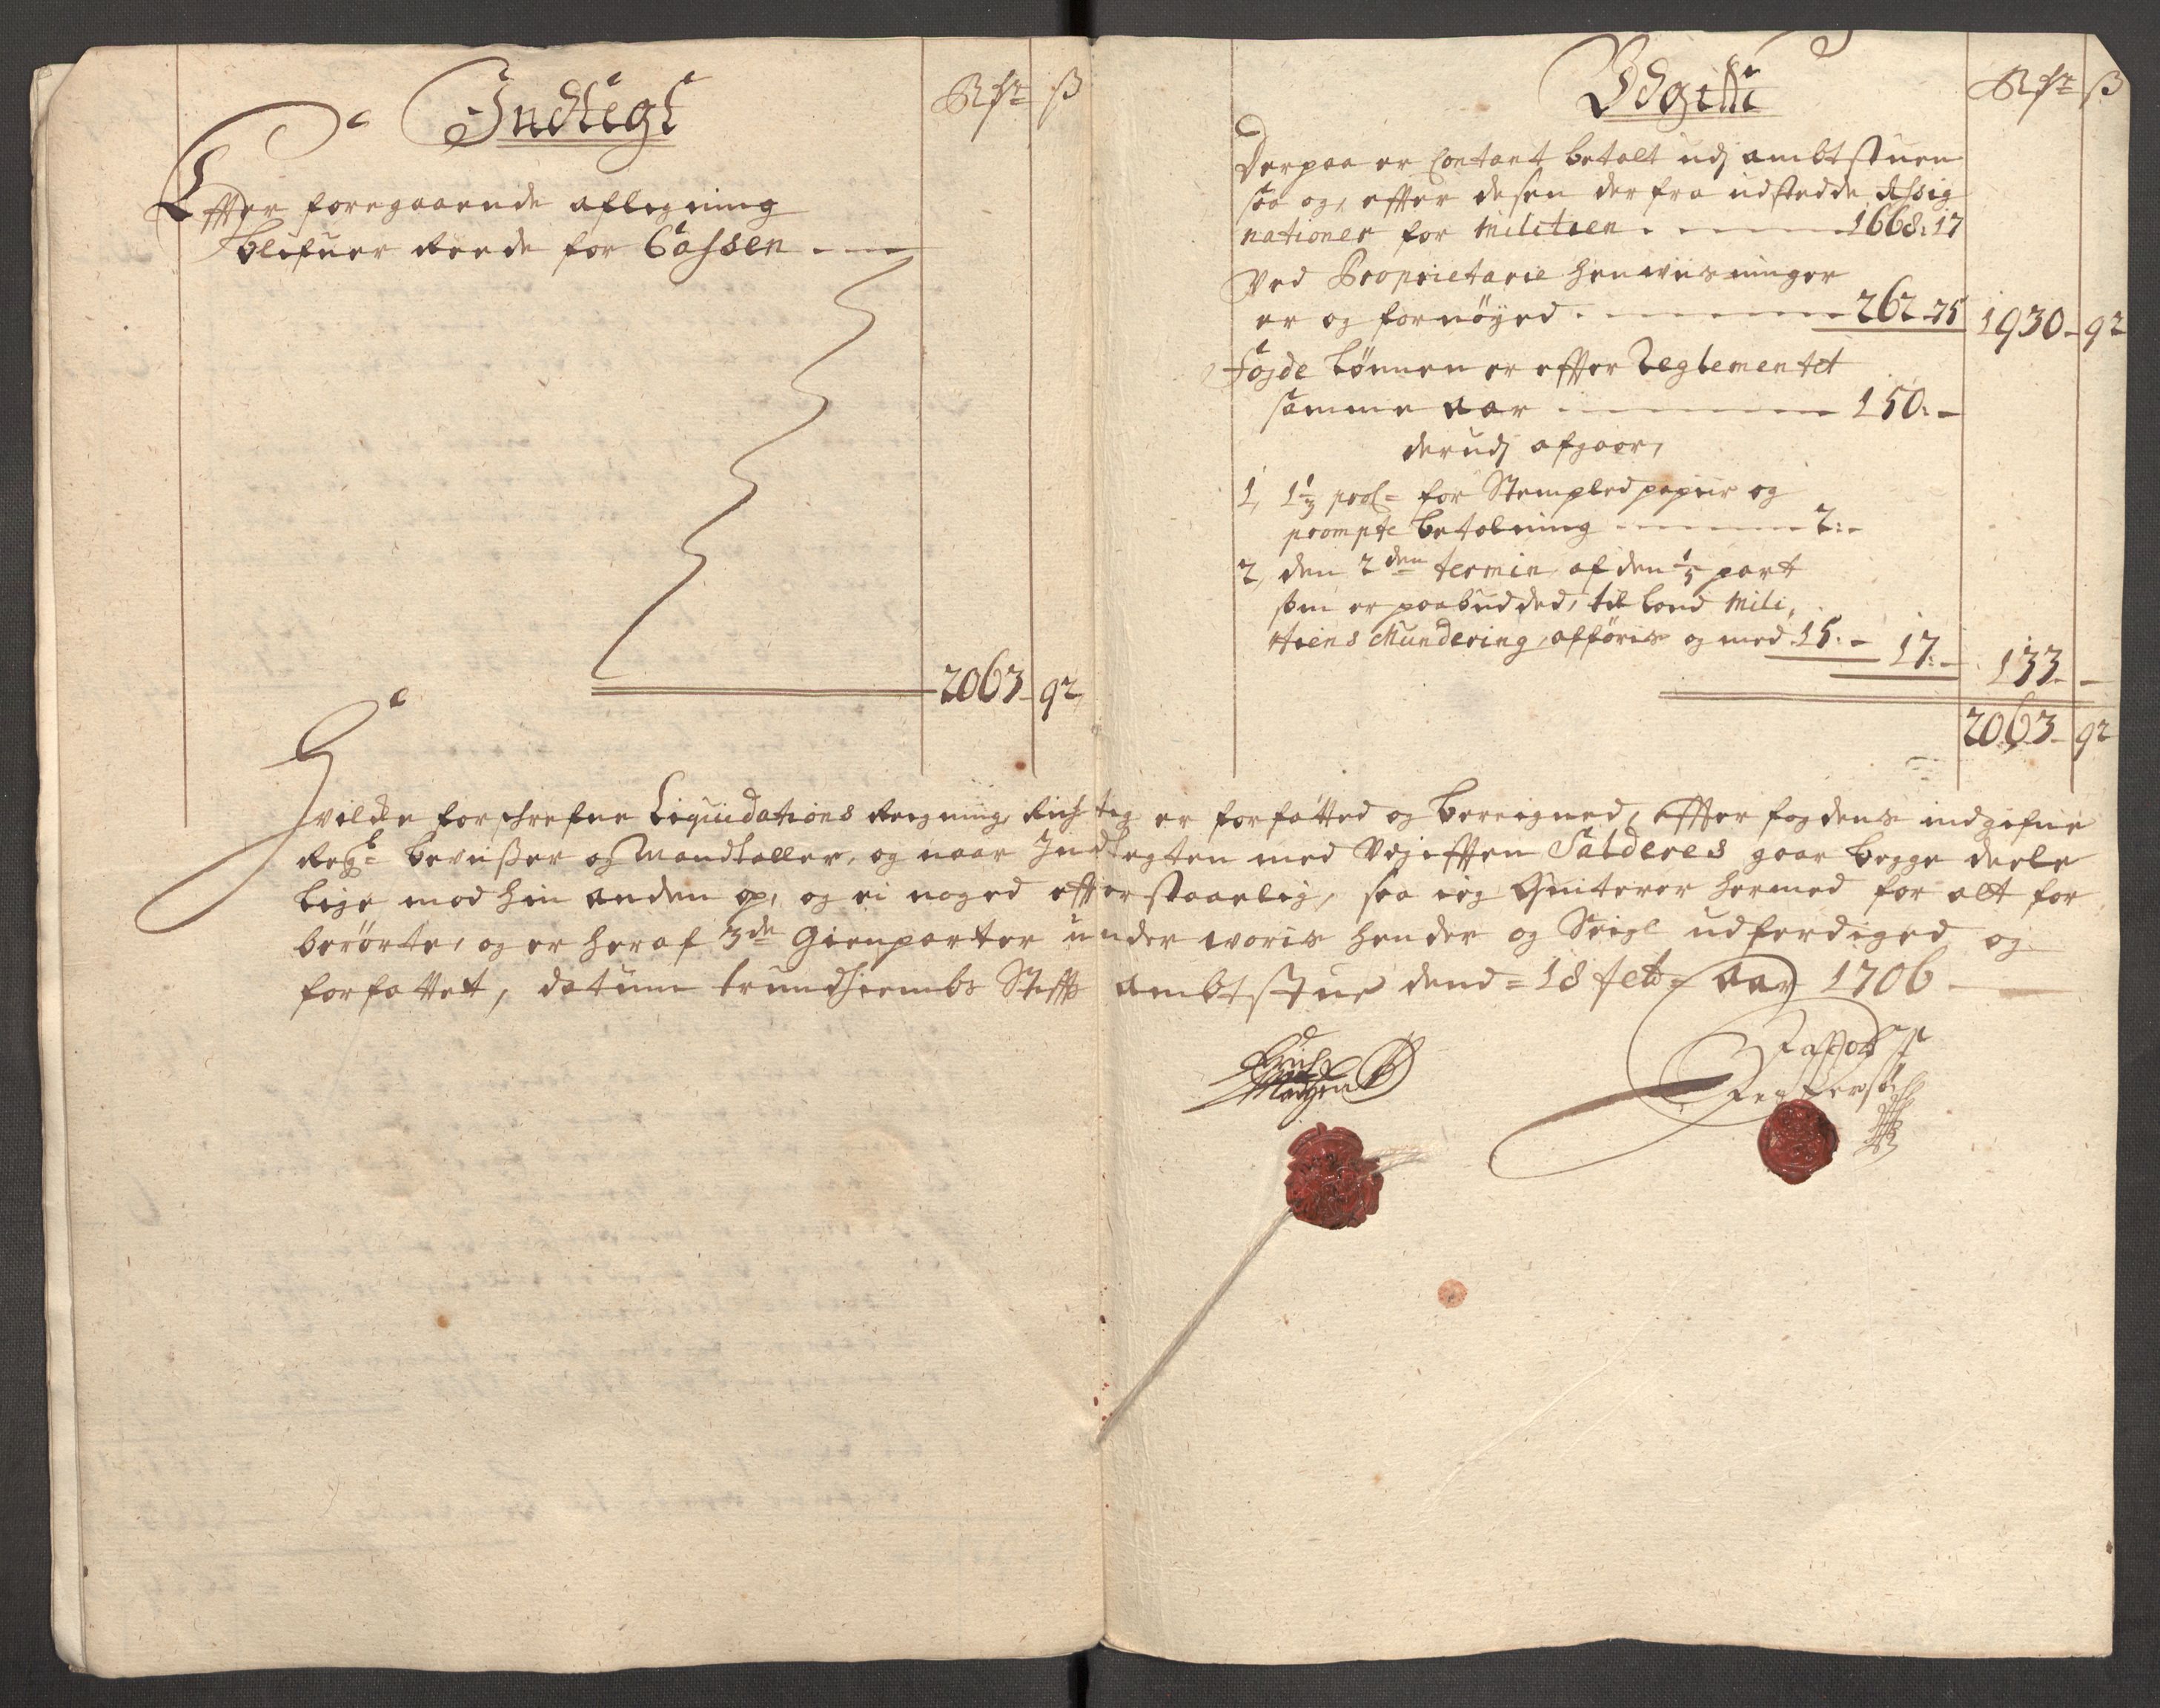 Indtegt
Rdr ß
Effter foregaaende aflegning
blifuer Reede for Cassen
2063 92
Udgifft
Rdr ß
Derpaa er Contant betalt udj ambtstuen
saa og, effter desen derfra udstedde Assig
nationer for Militien 1668: 17
Ved Proprietarie henviisninger
er og fornøyed 262 - 75 1930 - 92
Fogde Lønnen er effter Reglementet
samme aar 150: -
derudj afgaar,
1, 1⅓ for Stempled papiir og
prompte betalning 2: -
2, den 2den termin af den ⅕ part
som er paabudded, til Land Mili,
tiens Mundering, afføris og med 15: - 17: - 133 -
2063 - 92
Hvilcke forschrefne Liquidations Reigning, Richtig er forfatted og bereigned, effter fogdens indgifne
Regns: beviiser og Mandtaller, og naar Indtegten med Udgifften Salderes gaar begge deele
lige mod hin anden op, og ei noged effterstaarlig, saa ieg Qviterer hermed for alt for
berørte, og er heraf 3de Gienparter under voris hender og Seigl udferdiged og
forfattet, datum trundhiembs Stiffts ambtstue dend = 18 febr = aar 1706